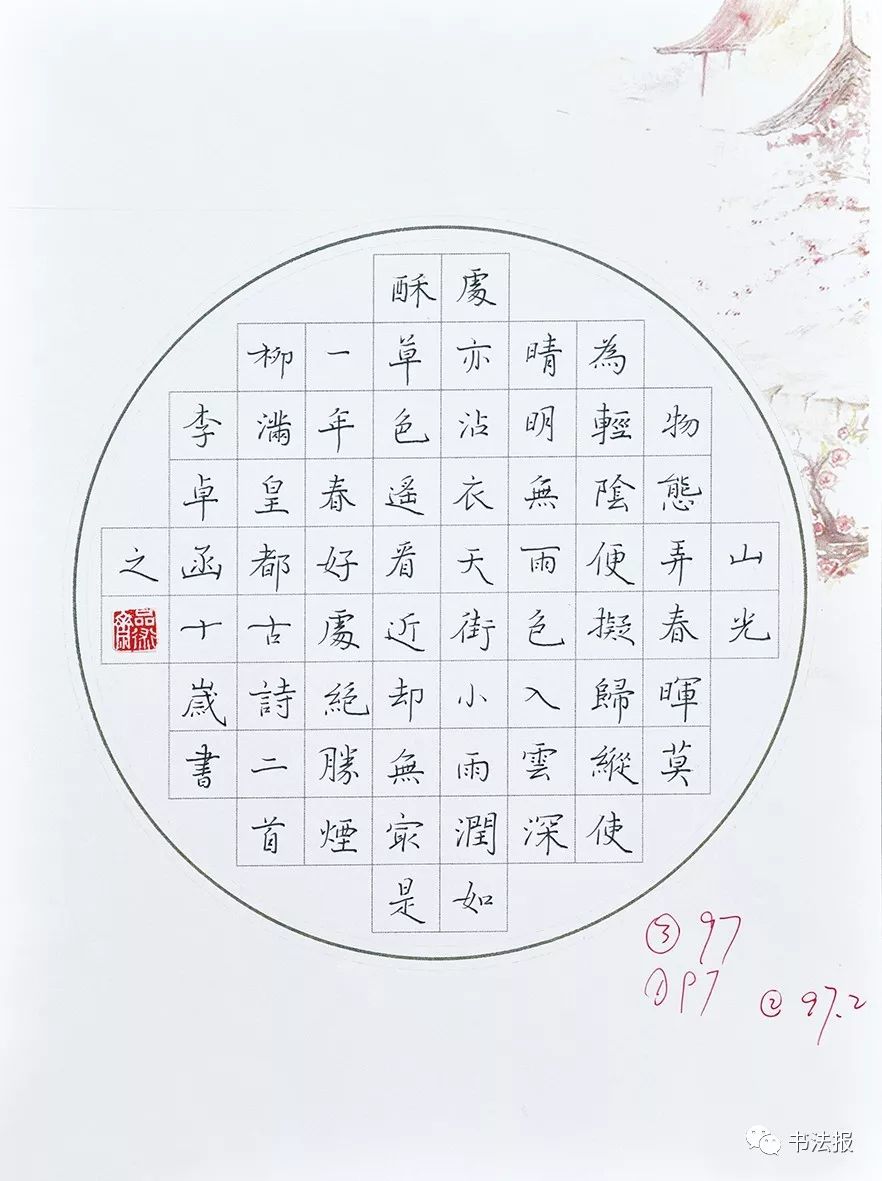 山光
物態弄春暉莫
為輕陰便擬歸縱使
晴明無雨色入雲深
處亦沾衣天街小雨潤如
酥草色遙看近却無㝡是
一年春好處絕勝煙
柳滿皇都古詩二首
李卓函十歲書
之
③97
①97
②97.2
书法报